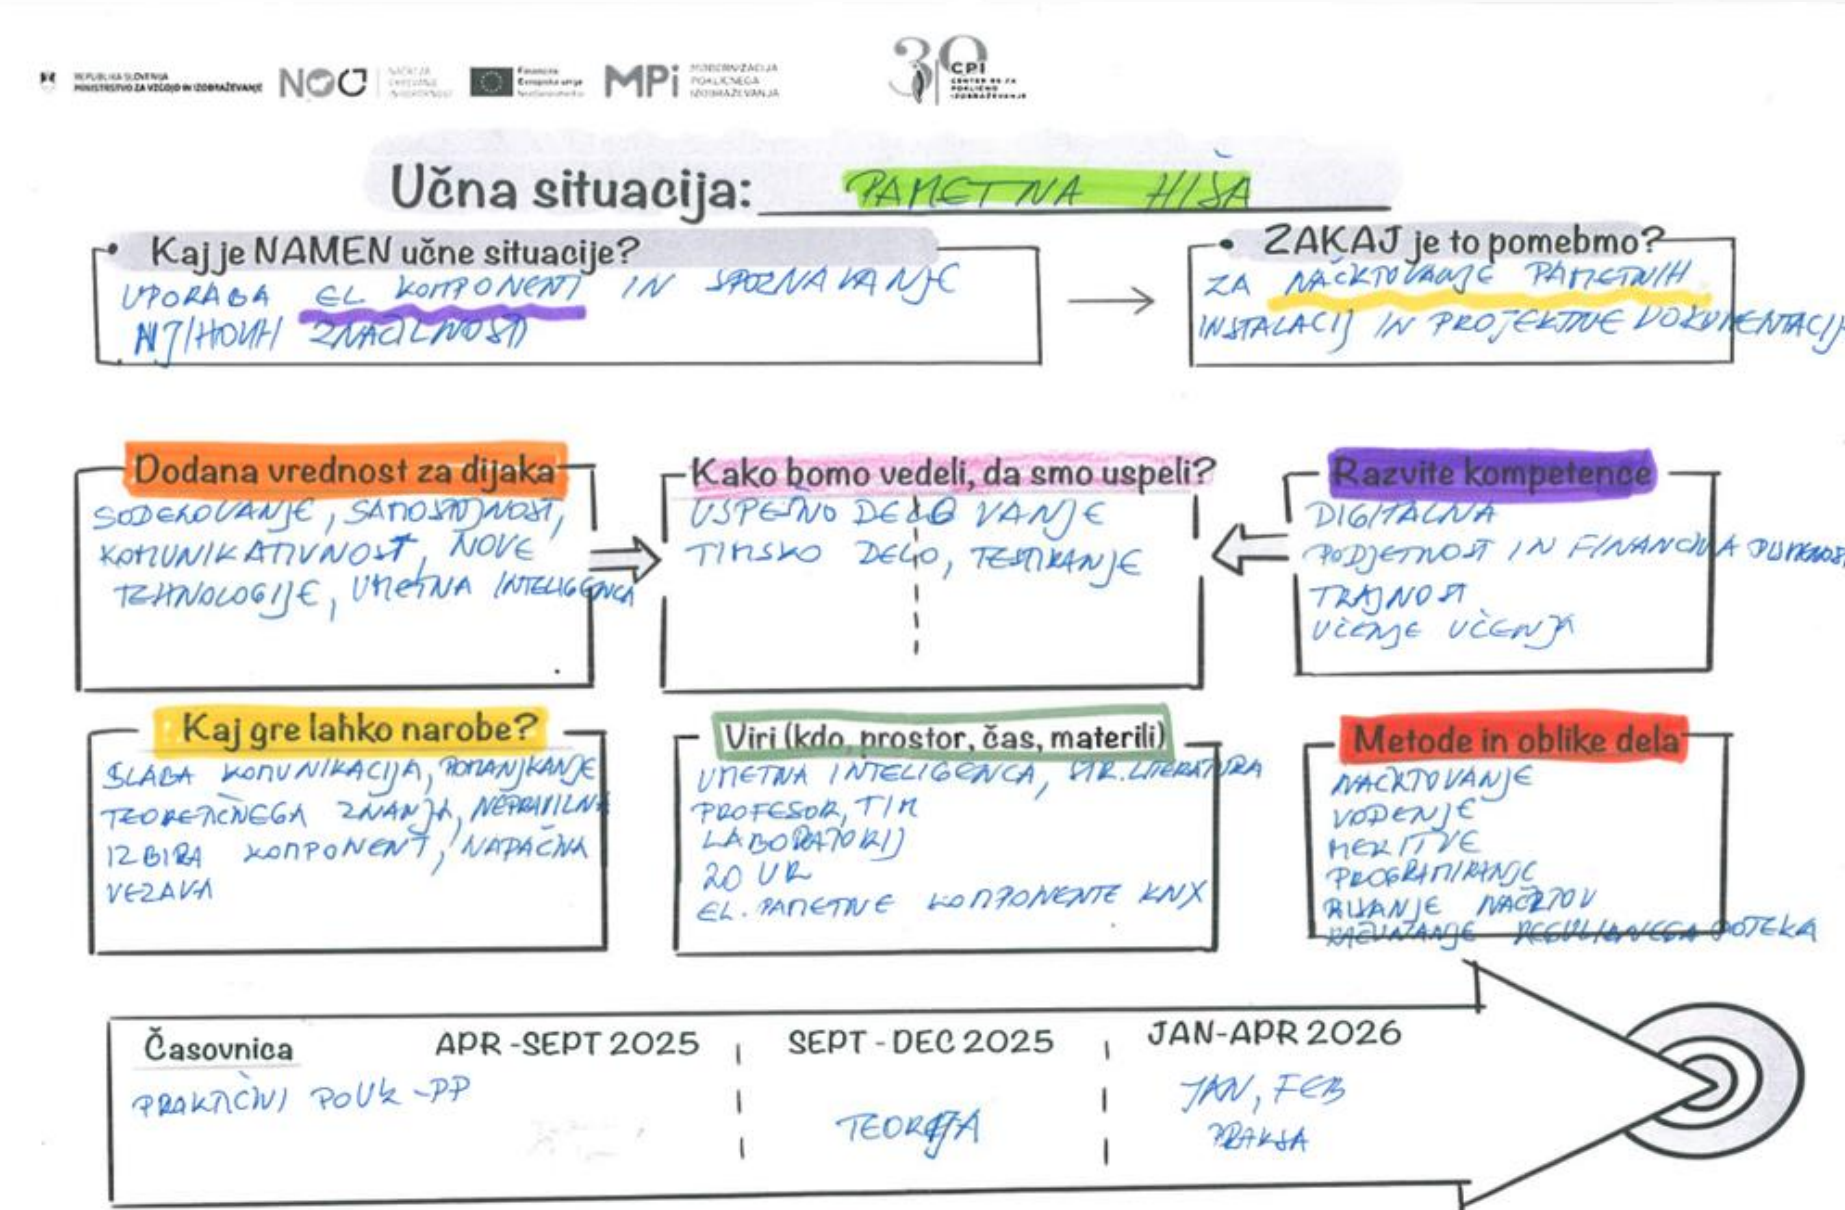 REPUBLIKA SLOVENIJA
MINISTRSTVO ZA VZGOJO IN IZOBRAŽEVANJE
NOO
NAČRT ZA
OKREVANJE
IN ODPORNOST
Financira
Evropska unija
NextGenerationEU
MPi
MODERNIZACIJA
POKLICNEGA
IZOBRAŽEVANJA
30
CPI
CENTER RS ZA
POKLICNO
IZOBRAŽEVANJE
Učna situacija: PAMETNA HIŠA
Kaj je NAMEN učne situacije?
UPORABA EL KOMPONENT IN SPOZNAVANJE
NJIHOVIH ZNAČILNOSTI
ZAKAJ je to pomebmo?
ZA NAČRTOVANJE PAMETNIH
INSTALACIJ IN PROJEKTNE DOKUMENTACIJE
Dodana vrednost za dijaka
SODELOVANJE, SAMOSTOJNOST,
KOMUNIKATIVNOST, NOVE
TEHNOLOGIJE, UMETNA INTELIGENCA
Kako bomo vedeli, da smo uspeli?
USPEŠNO DELOVANJE
TIMSKO DELO, TESTIRANJE
Razvite kompetence
DIGITALNA
PODJETNOST IN FINANČNA PISMENOST
TRAJNOST
UČENJE UČENJA
Kaj gre lahko narobe?
SLABA KOMUNIKACIJA, POMANJKANJE
TEORETIČNEGA ZNANJA, NEPRAVILNA
IZBIRA KOMPONENT, NAPAČNA
VEZAVA
Viri (kdo, prostor, čas, materili)
UMETNA INTELIGENCA, STR. LITERATURA
PROFESOR, TIM
LABORATORIJ
20 UR
EL. PAMETNE KOMPONENTE KNX
Metode in oblike dela
NAČRTOVANJE
VODENJE
MERITVE
PROGRAMIRANJE
RISANJE NAČRTOV
POTEKA
Časovnica
APR-SEPT 2025
SEPT-DEC 2025
JAN-APR 2026
PRAKTIČNI POUK-PP
TEORIJA
JAN, FEB
PRAKSA